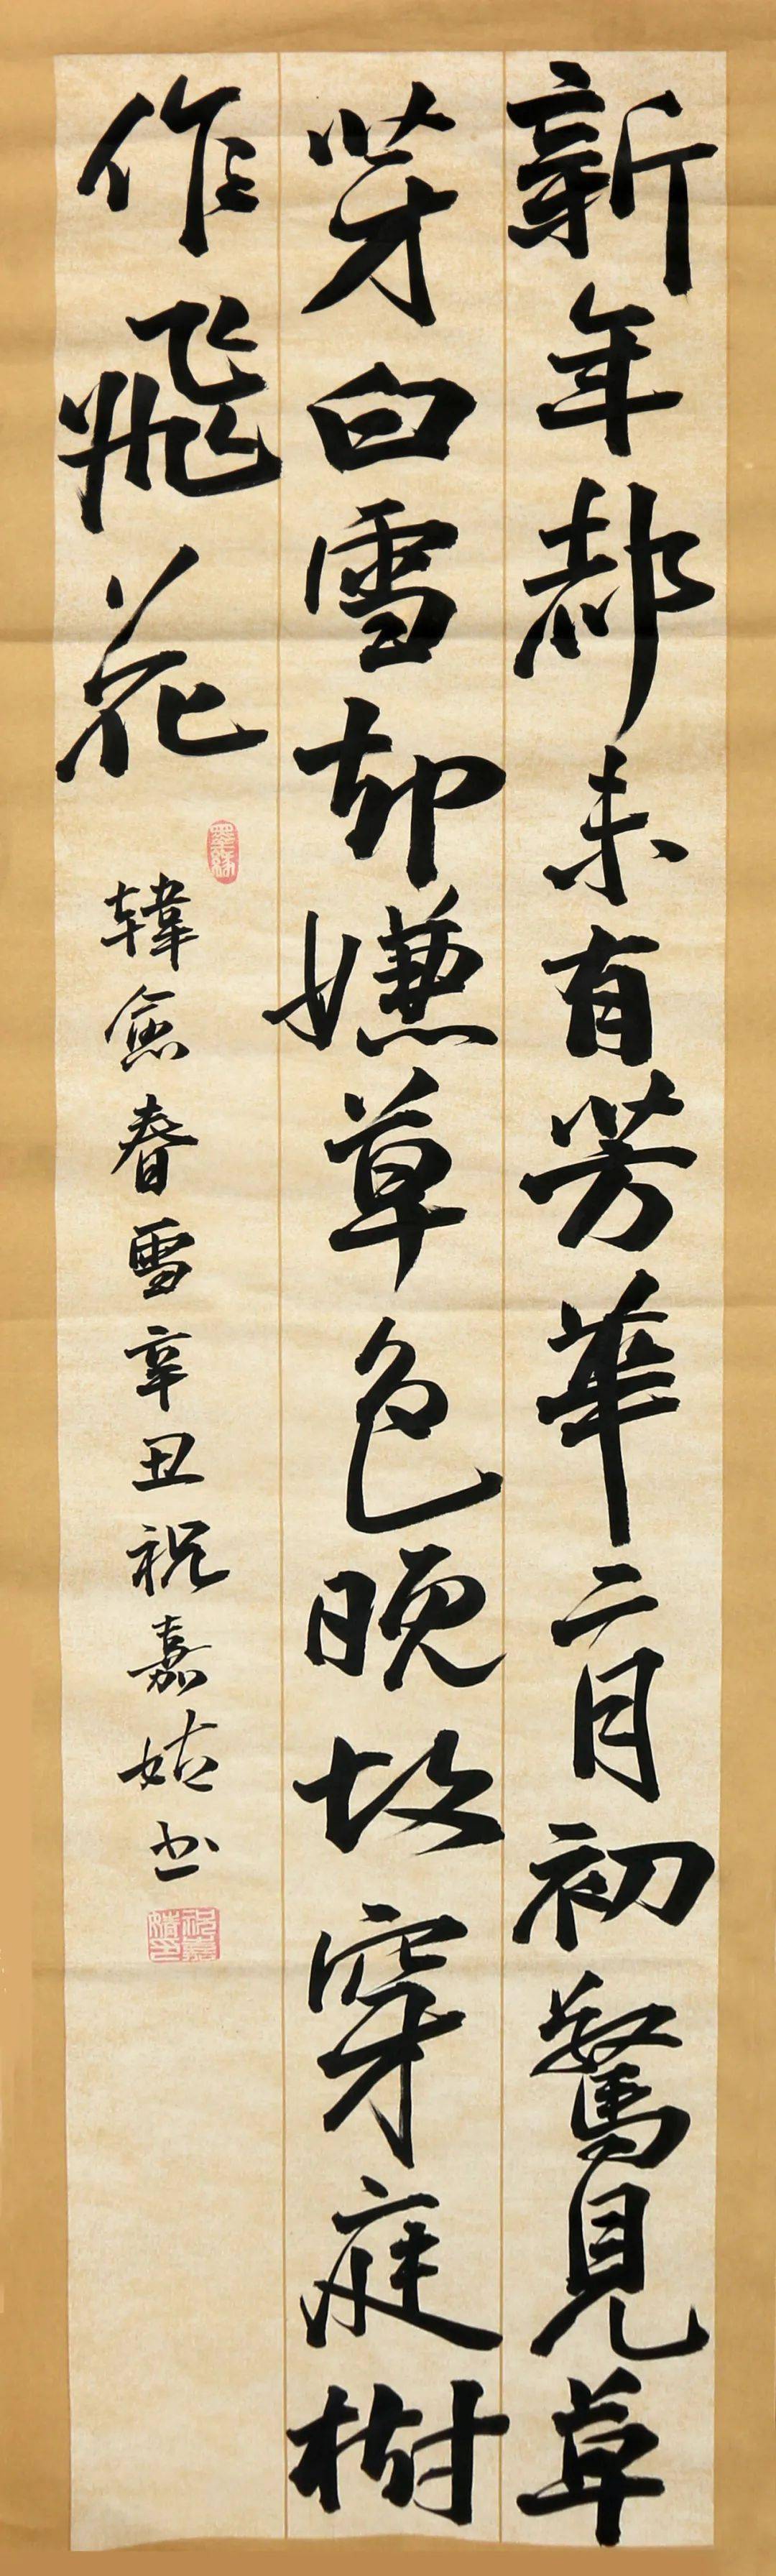 新年都未有芳華二月初驚見草
芽白雪却嫌草色晚故穿庭樹
作飛花
韓愈春雪辛丑祝嘉姑书